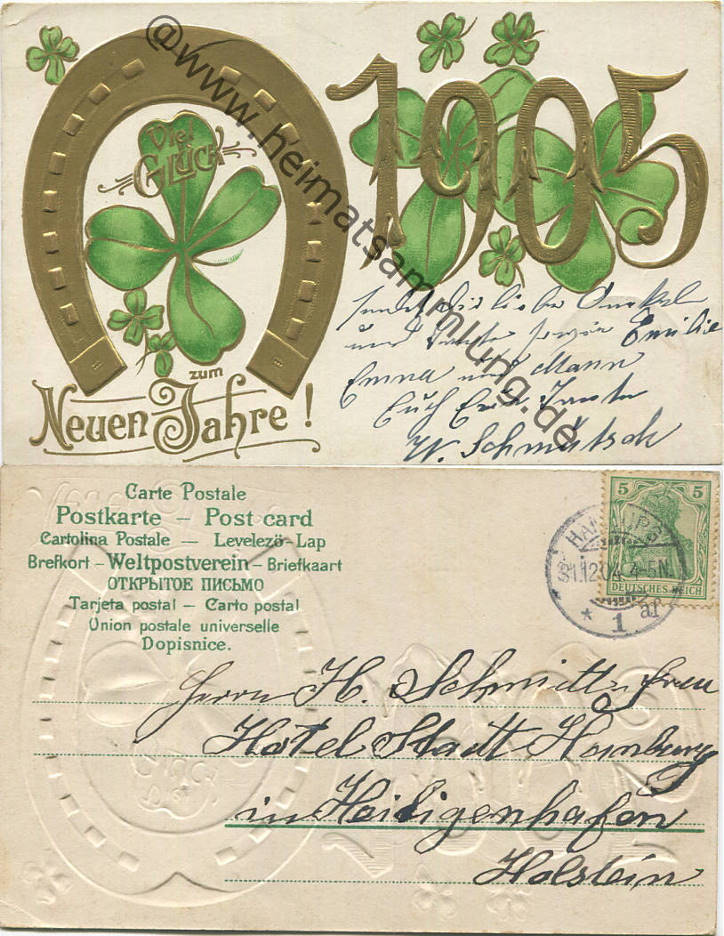 @www.heimatsammlung.de
Viel
Glück
1905
zum
Neuen Jahre!
sendet die liebe Onkel
und Tante sowie Emilie
Emma und Mann
Euch
W. Schmütsch
Carte Postale
Postkarte – Post card
Cartolina Postale – Levelező-Lap
Brefkort – Weltpostverein – Briefkaart
ОТКРЫТОЕ ПИСЬМО
Tarjeta postal – Carto postal
Union postale universelle
Dopisnice.
5 5
DEUTSCHES REICH
HAMBURG
31.12.04. 4-5N.
* 1 af
Herrn H. Schmidt u. Frau
Hotel Stadt Hamburg
in Heiligenhafen
Holstein